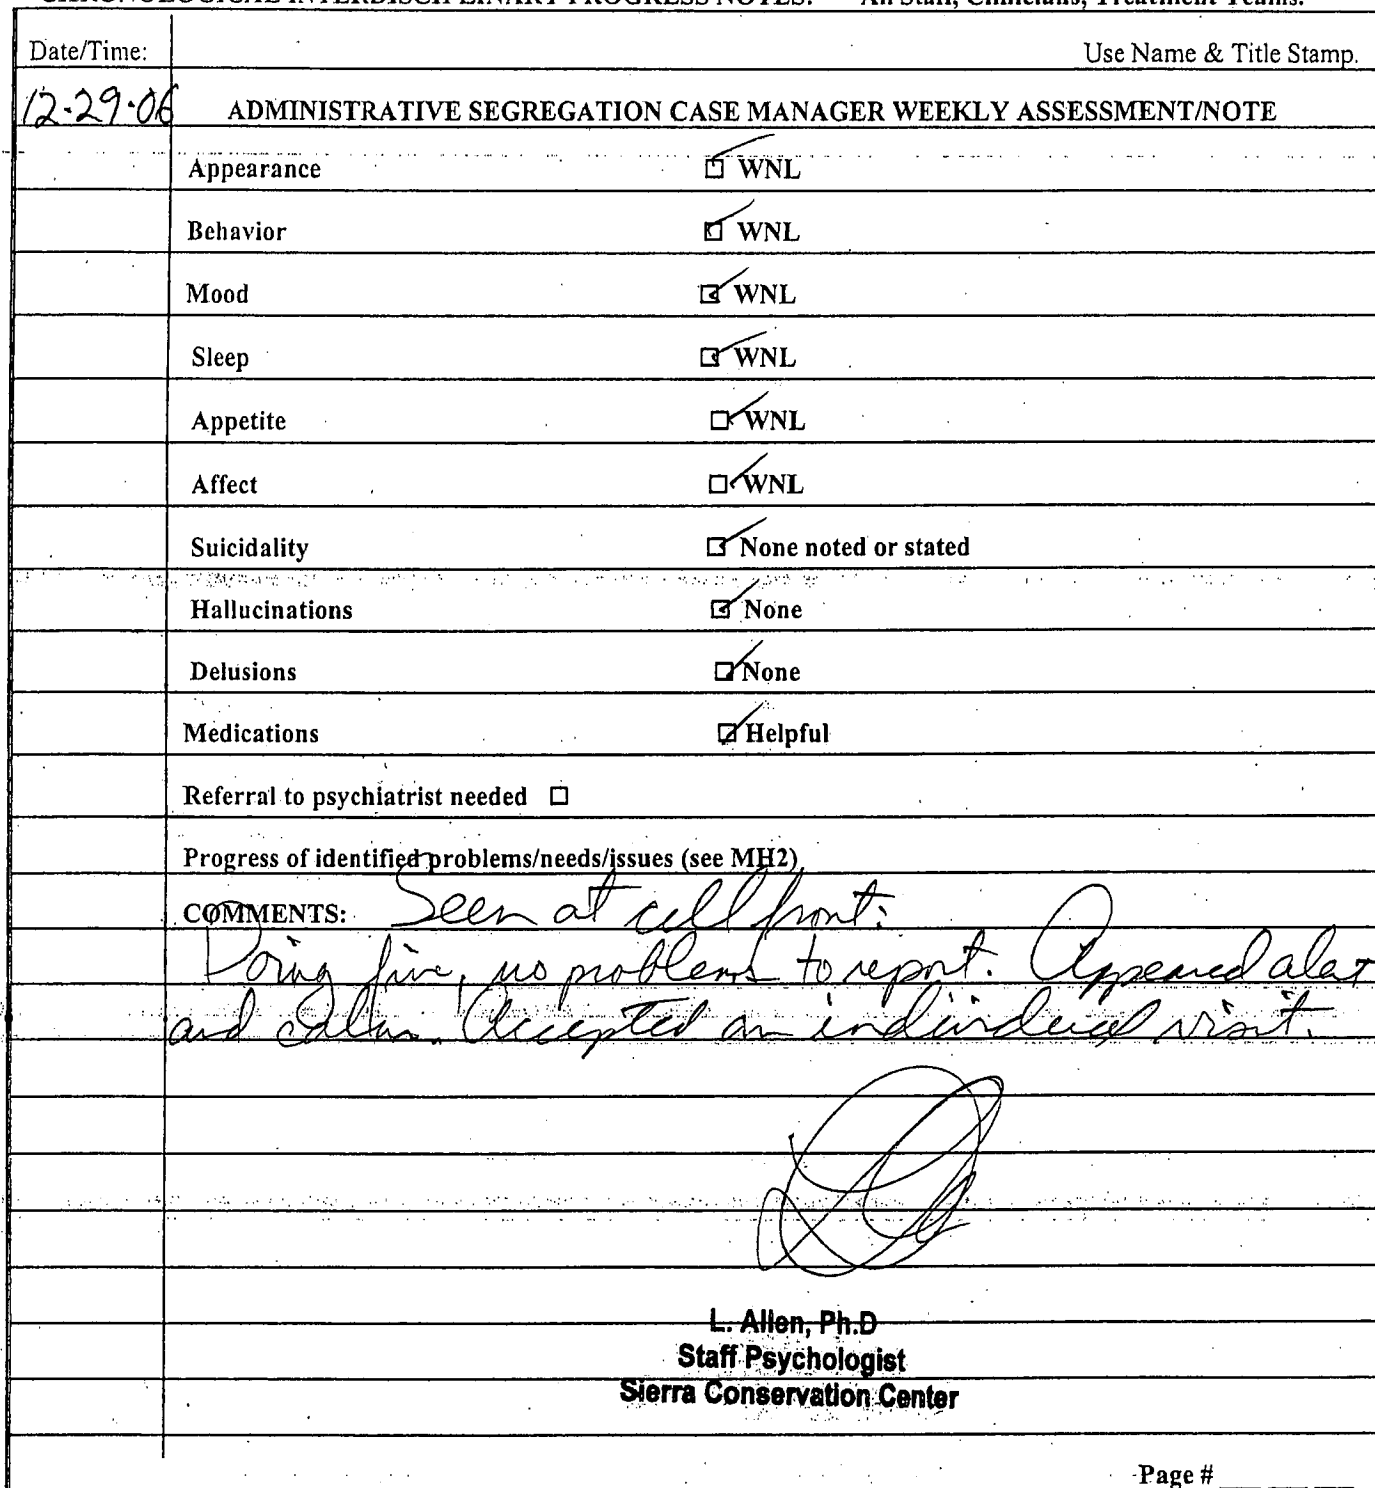 CHRONOLOGICAL INTERDISCIPLINARY PROGRESS NOTES: All Staff, Clinicians, Treatment Teams.
Date/Time: Use Name & Title Stamp.
12-29-06 ADMINISTRATIVE SEGREGATION CASE MANAGER WEEKLY ASSESSMENT/NOTE
Appearance WNL
Behavior WNL
Mood WNL
Sleep WNL
Appetite WNL
Affect WNL
Suicidality None noted or stated
Hallucinations None
Delusions None
Medications Helpful
Referral to psychiatrist needed
Progress of identified problems/needs/issues (see MH2)
COMMENTS: Seen at cell front:
Doing fine, no problems to report. Appeared alert
and calm. Accepted an individual visit.
L. Allen, Ph.D
Staff Psychologist
Sierra Conservation Center
Page #